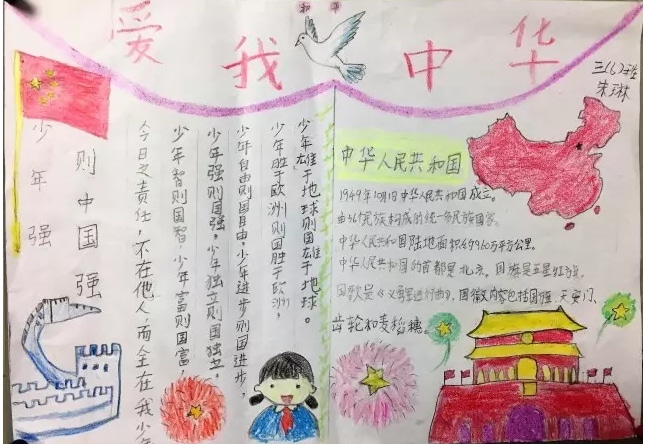 和平
爱我中华
三(6)班
朱琳
少年强
则中国强
今日之责任，不在他人，而全在我少年
少年智则国智，少年富则国富，
少年强则国强，少年独立则国独立，
少年自由则国自由，少年进步则国进步，
少年胜于欧洲则国胜于欧洲，
少年雄于地球则国雄于地球。
中华人民共和国
1949年10月1日中华人民共和国成立。
由56个民族构成的统一多民族国家。
中华人民共和国陆地面积约960万平方公里。
中华人民共和国的首都是北京。国旗是五星红旗，
国歌是《义勇军进行曲》，国徽内容包括国旗、天安门、
齿轮和麦稻穗。